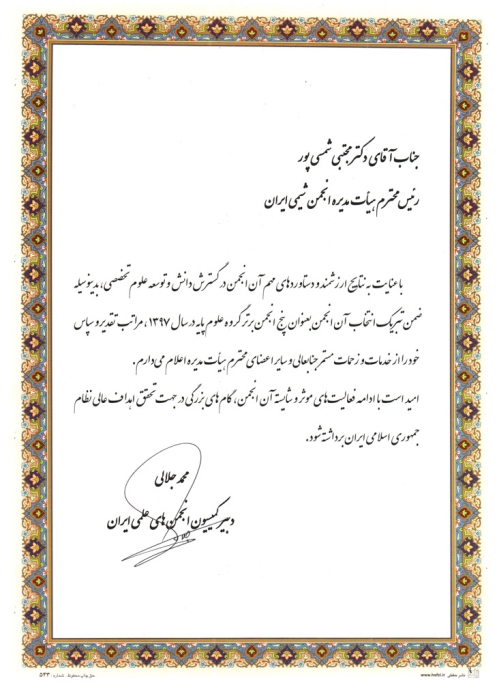 جناب آقای دکتر مجتبی شمسی پور
رئیس محترم هیأت مدیره انجمن شیمی ایران
با عنایت به نتایج ارزشمند و دستاوردهای مهم آن انجمن در گسترش دانش و توسعه علوم تخصصی، بدینوسیله
ضمن تبریک انتخاب آن انجمن بعنوان پنج انجمن برتر گروه علوم پایه در سال ۱۳۹۷، مراتب تقدیر و سپاس
خود را از خدمات و زحمات مستمر جنابعالی و سایر اعضای محترم هیأت مدیره اعلام می دارم.
امید است با ادامه فعالیت های موثر و شایسته آن انجمن، گام های بزرگی در جهت تحقق اهداف عالی نظام
جمهوری اسلامی ایران برداشته شود.
محمد جلالی
دبیر کمیسیون انجمن های علمی ایران
www.hafizi.ir
حق چاپ محفوظ. شماره: ۵۳۳